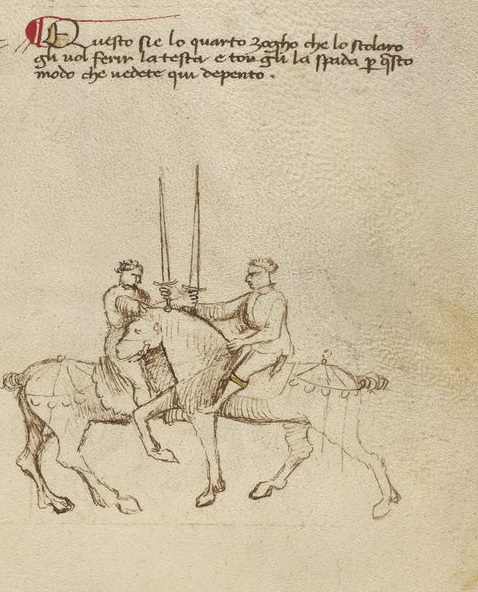 Questo sie lo quarto zogho che lo scolaro
gli vol ferir la testa e tor gli la spada p q̃sto
modo che uedete qui depento.